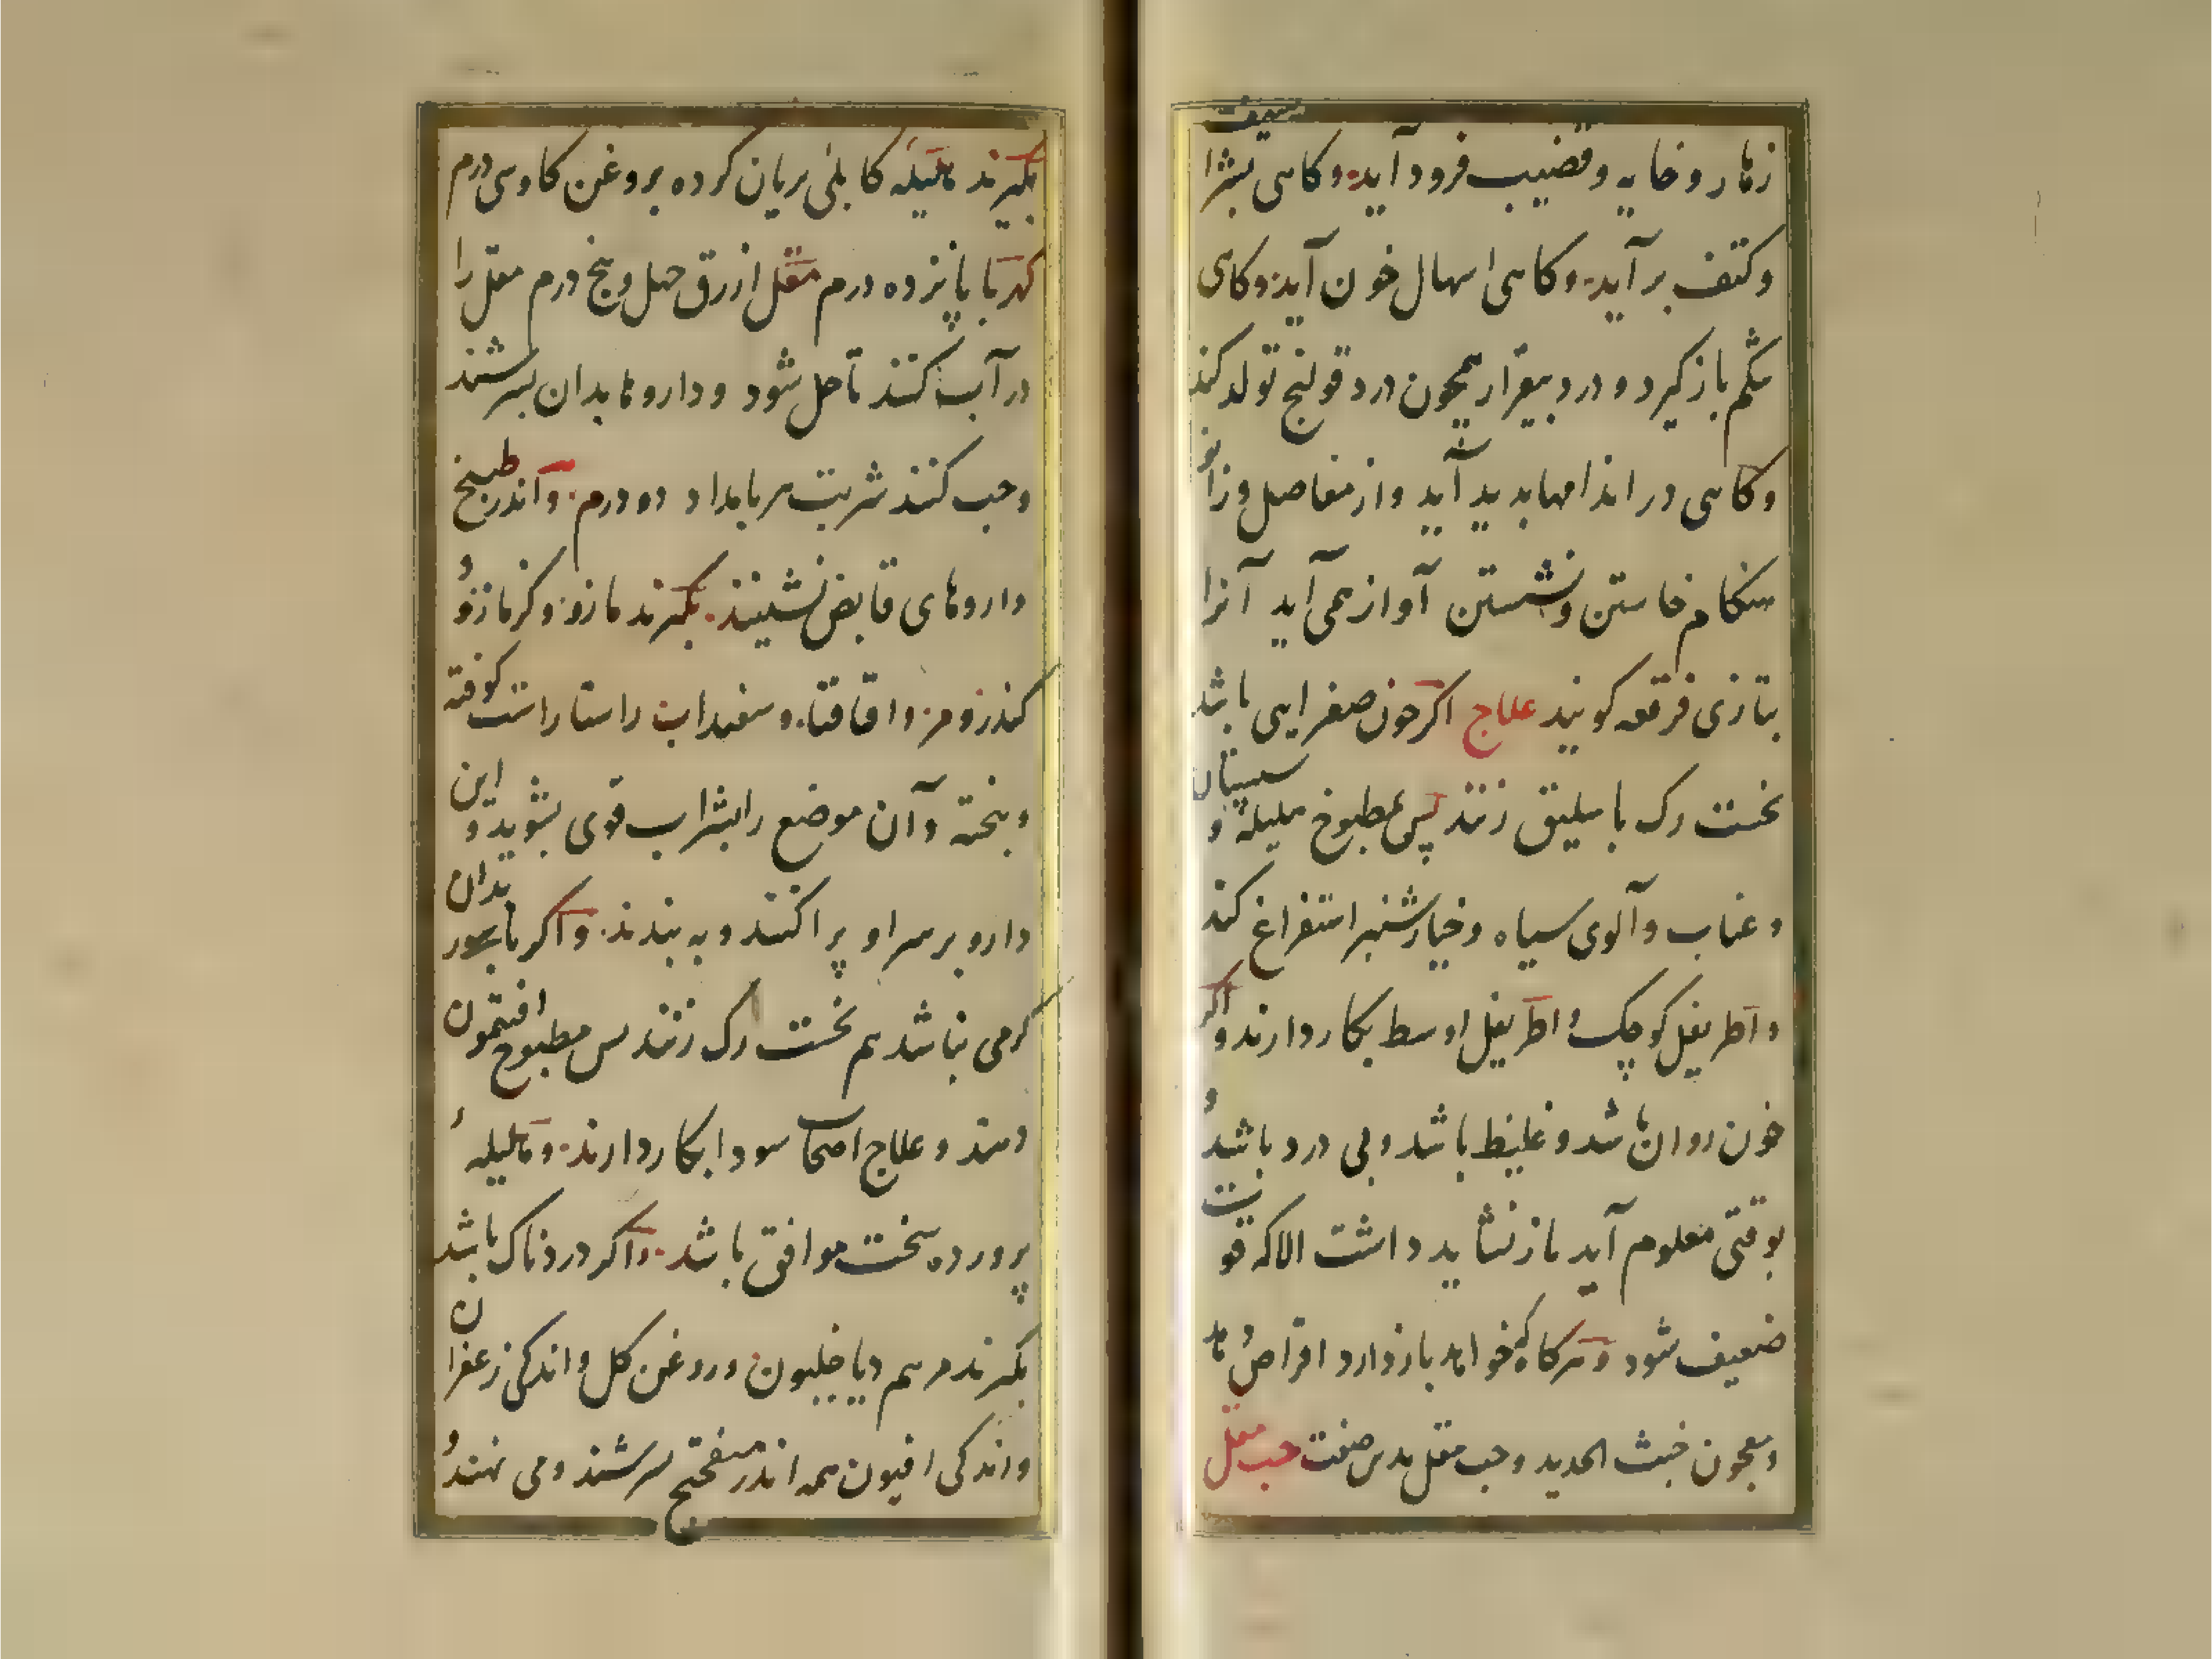 زهار و خایه و قضیب فرود آید و کاهی بشرا سیف
و کتف بر آید و کاهی اسهال خون آید و کاهی
شکم باز کیرد و درد بیقرار همچون درد قولنج تولد کند
و کاهی در اندامها بدید آید و از مفاصل و زانو
هنکام خاستن و نشستن آواز همی آید آنرا
بتازی فرقعه کویند علاج اکر خون صفرایی باشد
نخست رک باسلیق زنند پس مطبوخ هلیله و سپستان
و عناب و آلوی سیاه و خیارشنبر استفراغ کند
و اطریفل کوچک و اطریفل اوسط بکار دارند و اکر
خون روان باشد و غلیظ باشد و بی درد باشد و
بوقتی معلوم آید باز نشاید داشت الا که قوت
ضعیف شود و هرکاه که خواهد بازدارد اقراص
و معجون خبث الحدید و حب مقل بدین صفت حب مقل
بکیرند هلیله کابلی بریان کرده بروغن کاو سی درم
کهربا پانزده درم مقل ازرق چهل و پنج درم مقل را
در آب کنند تا حل شود و داروها بدان بسرشند
و حب کنند شربت هر بامداد ده درم و اندر طبیخ
داروهای قابض نشینند بکیرند مازو و کزمازو و
کندر و مر و اقاقیا و سفیداب راستا راست کوفته
و بیخته و آن موضع را بشراب قوی بشوید و این
دارو بر سر او پراکنند و به بندند و اکر ناسور بدان
کرمی نباشد هم نخست رک زنند پس مطبوخ افتیمون
دهند و علاج اصحاب سودا بکار دارند و هلیله
پرورده سخت موافق باشد و اکر دردناک باشد
بکیرند مرهم دیاخیلیون و روغن کل و اندکی زعفران
و اندکی افیون همه اندر میفختج سرشند و می نهند و